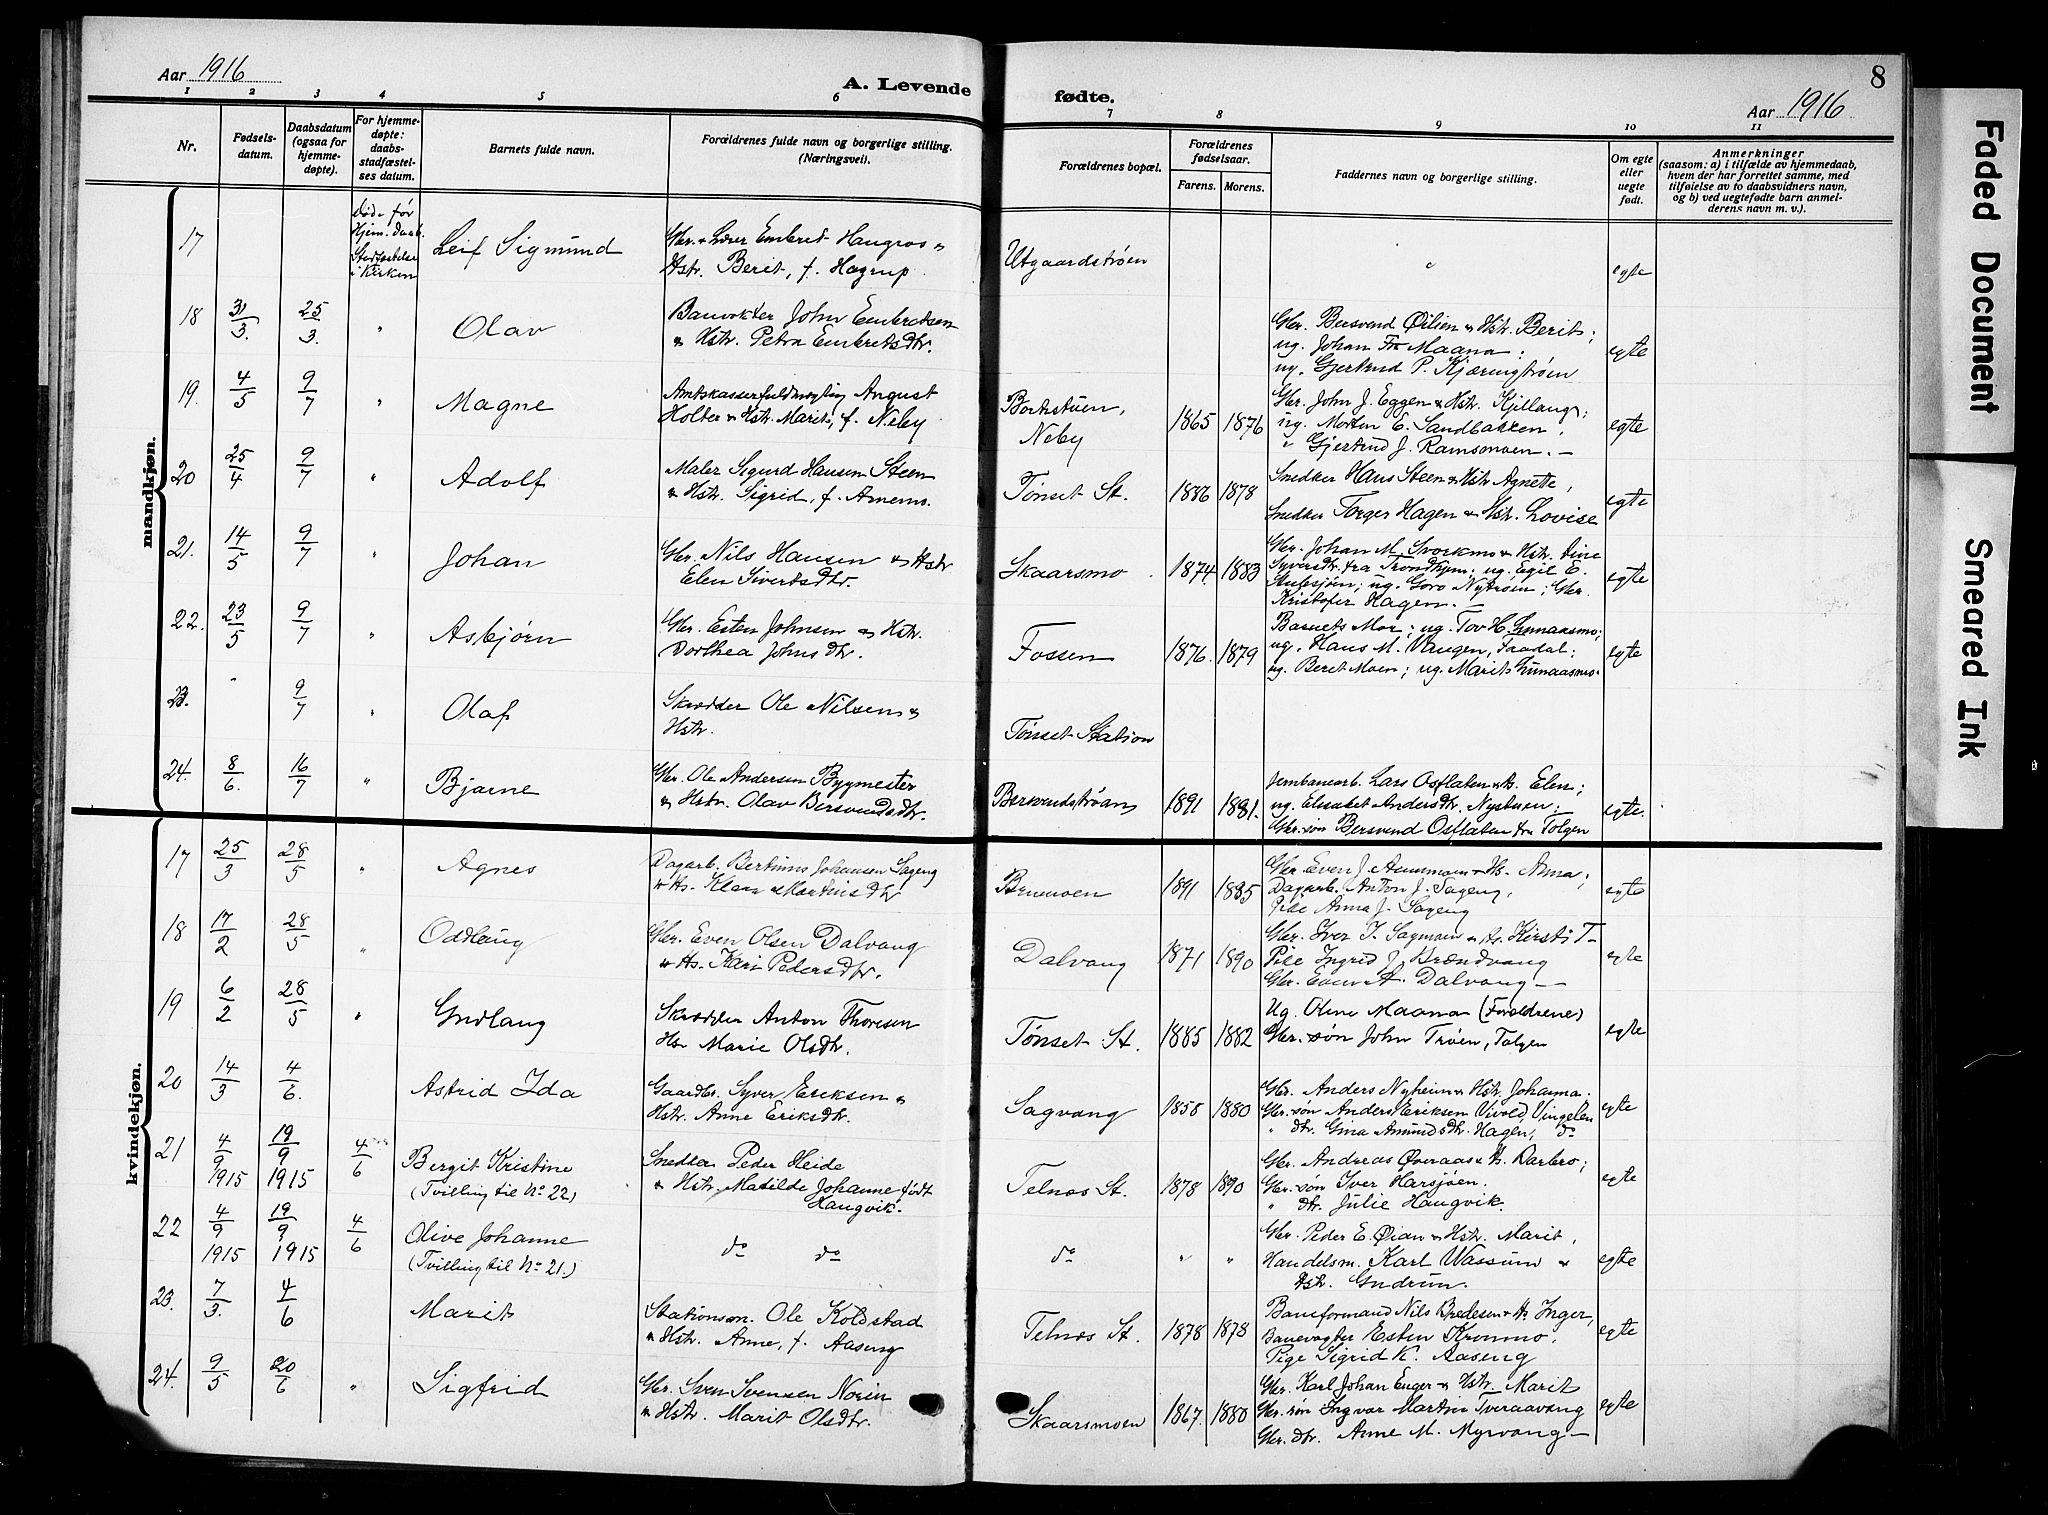 Aar 1916
A. Levende fødte.
8
Aar 1916
1 2 3 4 5 6 7 8 9 10 11
Nr.
Fødsels-
datum.
Daabsdatum
(ogsaa for
hjemme-
døpte).
For hjemme-
døpte:
daabs-
stadfæstel-
ses datum.
Barnets fulde navn.
Forældrenes fulde navn og borgerlige stilling.
(Næringsvei).
Forældrenes bopæl.
Forældrenes
fødselsaar.
Farens. Morens.
Faddernes navn og borgerlige stilling.
Om egte
eller
uegte
født.
Anmerkninger
(saasom: a) i tilfælde av hjemmedaab,
hvem der har forrettet samme, med
tilføielse av to daabsvidners navn,
og b) ved uegtefødte barn anmel-
derens navn m. v.).
mandkjøn.
17
Døde før
Hjem. daab.
Stadfæstelse
i Kirken
Leif Sigmund
Gbr. & Lærer Embret Haugros &
Hstr. Berit, f. Hagrup
Utgaardstrøen
"
egte
18 31/3. 25/3. " Olav
Banvokter John Embretsen
& Hstr. Petra Embretsdtr.
Gbr. Bersvend Øilien & Hstr. Berit;
ug. Johan Maana;
ug. Gjertrud P. Kjæringtrøen
egte
19. 4/5 9/7 " Magne
Amtskasserfuldmægtig August
Holter & Hstr. Marit, f. Neby
Borkstuen,
Neby
1865 1876
Gbr. John J. Eggen & Hstr. Kjellaug;
ug. Morten E. Sandbakken,
" Gjertrud J. Ramsmoen. –
egte
20 25/4 9/7 " Adolf
Maler Sigurd Hansen Steen
& Hstr. Sigrid, f. Arnemo.
Tønset St.
1886 1878
Snedker Hans Steen & Hstr Agnete,
Snedker Torger Hagen & Hstr. Lovise
egte
21. 14/5 9/7 " Johan
Gbr. Nils Hansen & Hstr
Elen Sivertsdtr.
Skaarsmo
1874 1883
Gbr. Johan M. Svorkmo & Hstr. Dine
Syversdtr. fra Trondhjem; ug. Egil E.
Stubsjøn; ug. Goro Nytrøen; Gbr.
Kristofer Hagen. –
egte
22. 23/5 9/7 " Asbjørn
Gbr. Esten Johnsen & Hstr.
Dorthea Johnsdtr.
Fossen
1876. 1879
Barnets Mor; ug. Tov H. Gunaasmo;
ug. Hans M. Vangen, Faadal;
ug. Beret Moen; ug. Marit Gunaasmo.
egte
23. " 9/7 " Olaf
Skrædder Ole Nilsen &
Hstr.
Tønset Station
24. 8/6. 16/7 " Bjarne
Gbr. Ole Andersen Bygmester
& Hstr. Olav Bersvendsdtr.
Bersvendstrøan
1891 1881.
Jernbanearb. Lars Osflaten & Hs. Elen;
ug. Elisabet Andersdtr. Nystuen;
Gbr.søn Bersvend Osflaten fra Tolgen
egte.
kvindekjøn.
17 25/3 28/5 " Agnes
Dagarb. Bertinus Johansen Sageng
& Hs. Klara Martinusdtr
Brumoen
1891 1885
Gbr Even J. Aummoen & Hs. Anna;
Dagarb. Anton J. Sageng,
Pike Anna J. Sageng
egte
18 17/2 28/5 " Oddlaug
Gbr. Even Olsen Dalvang
& Hs. Kari Pedersdtr.
Dalvang
1871 1890
Gbr. Iver I. Sagmoen & Hs. Kirsti T–
Pike Ingrid J. Brændvang
Gbr. Even A. Dalvang –
egte
19 6/2 28/5 " Gudlaug
Skrædder Anton Thoresen
Hs Marie Olsdtr.
Tønset St.
1885 1882
Ug. Oline Maana (Forældrene)
Gbr.søn John Trøen, Tolgen
egte
20 14/3 4/6. Astrid Ida
Gaardbr. Syver Eriksen &
Hstr. Anne Eriksdtr.
Sagvang
1858 1880
Gbr. Anders Nyheim & Hstr. Johanna.
Gbr.søn Anders Eriksen Vivold Vingelen
" dtr. Gina Amundsdtr. Hagen, do
egte
21 4/9 1915 19/9 1915 4/6 Bergit Kristine
(Tvilling til No 22)
Snedker Peder Heide
& Hstr. Matilde Johanne født
Haugvik.
Telnæs St.
1878 1890
Gbr. Andreas Øveraas & Hs. Barbro;
Gbr.søn Iver Harsjøen.
" dtr. Julie Haugvik.
egte
22 4/9 1915 19/9 1915 4/6 Olive Johanne
(Tvilling til No 21.)
do do
do
" "
Gbr. Peder E. Øian & Hstr. Marit,
Handelsm. Karl Wassum &
Hstr. Gudrun.
egte
23. 7/3. 4/6 Marit
Stationsm. Ole Koldstad
& Hstr. Anne, f. Aaseng
Telnæs St.
1878 1878
Baneformand Nils Bredesen & Hs. Inger,
Banevogter Esten Kronmo,
Pige Sigrid K. Aaseng
egte
24. 9/5 20/6 " Sigfrid
Gbr. Sven Svensen Norin
& Hstr. Marit Olsdtr.
Skaarsmoen
1867. 1880
Gbr. Karl Johan Enger & Hstr. Marit
Gbr.søn Ingvar Martin Tveraavang
Gbr.dtr. Anne M. Myrvang –
egte
Faded Document
Smeared Ink